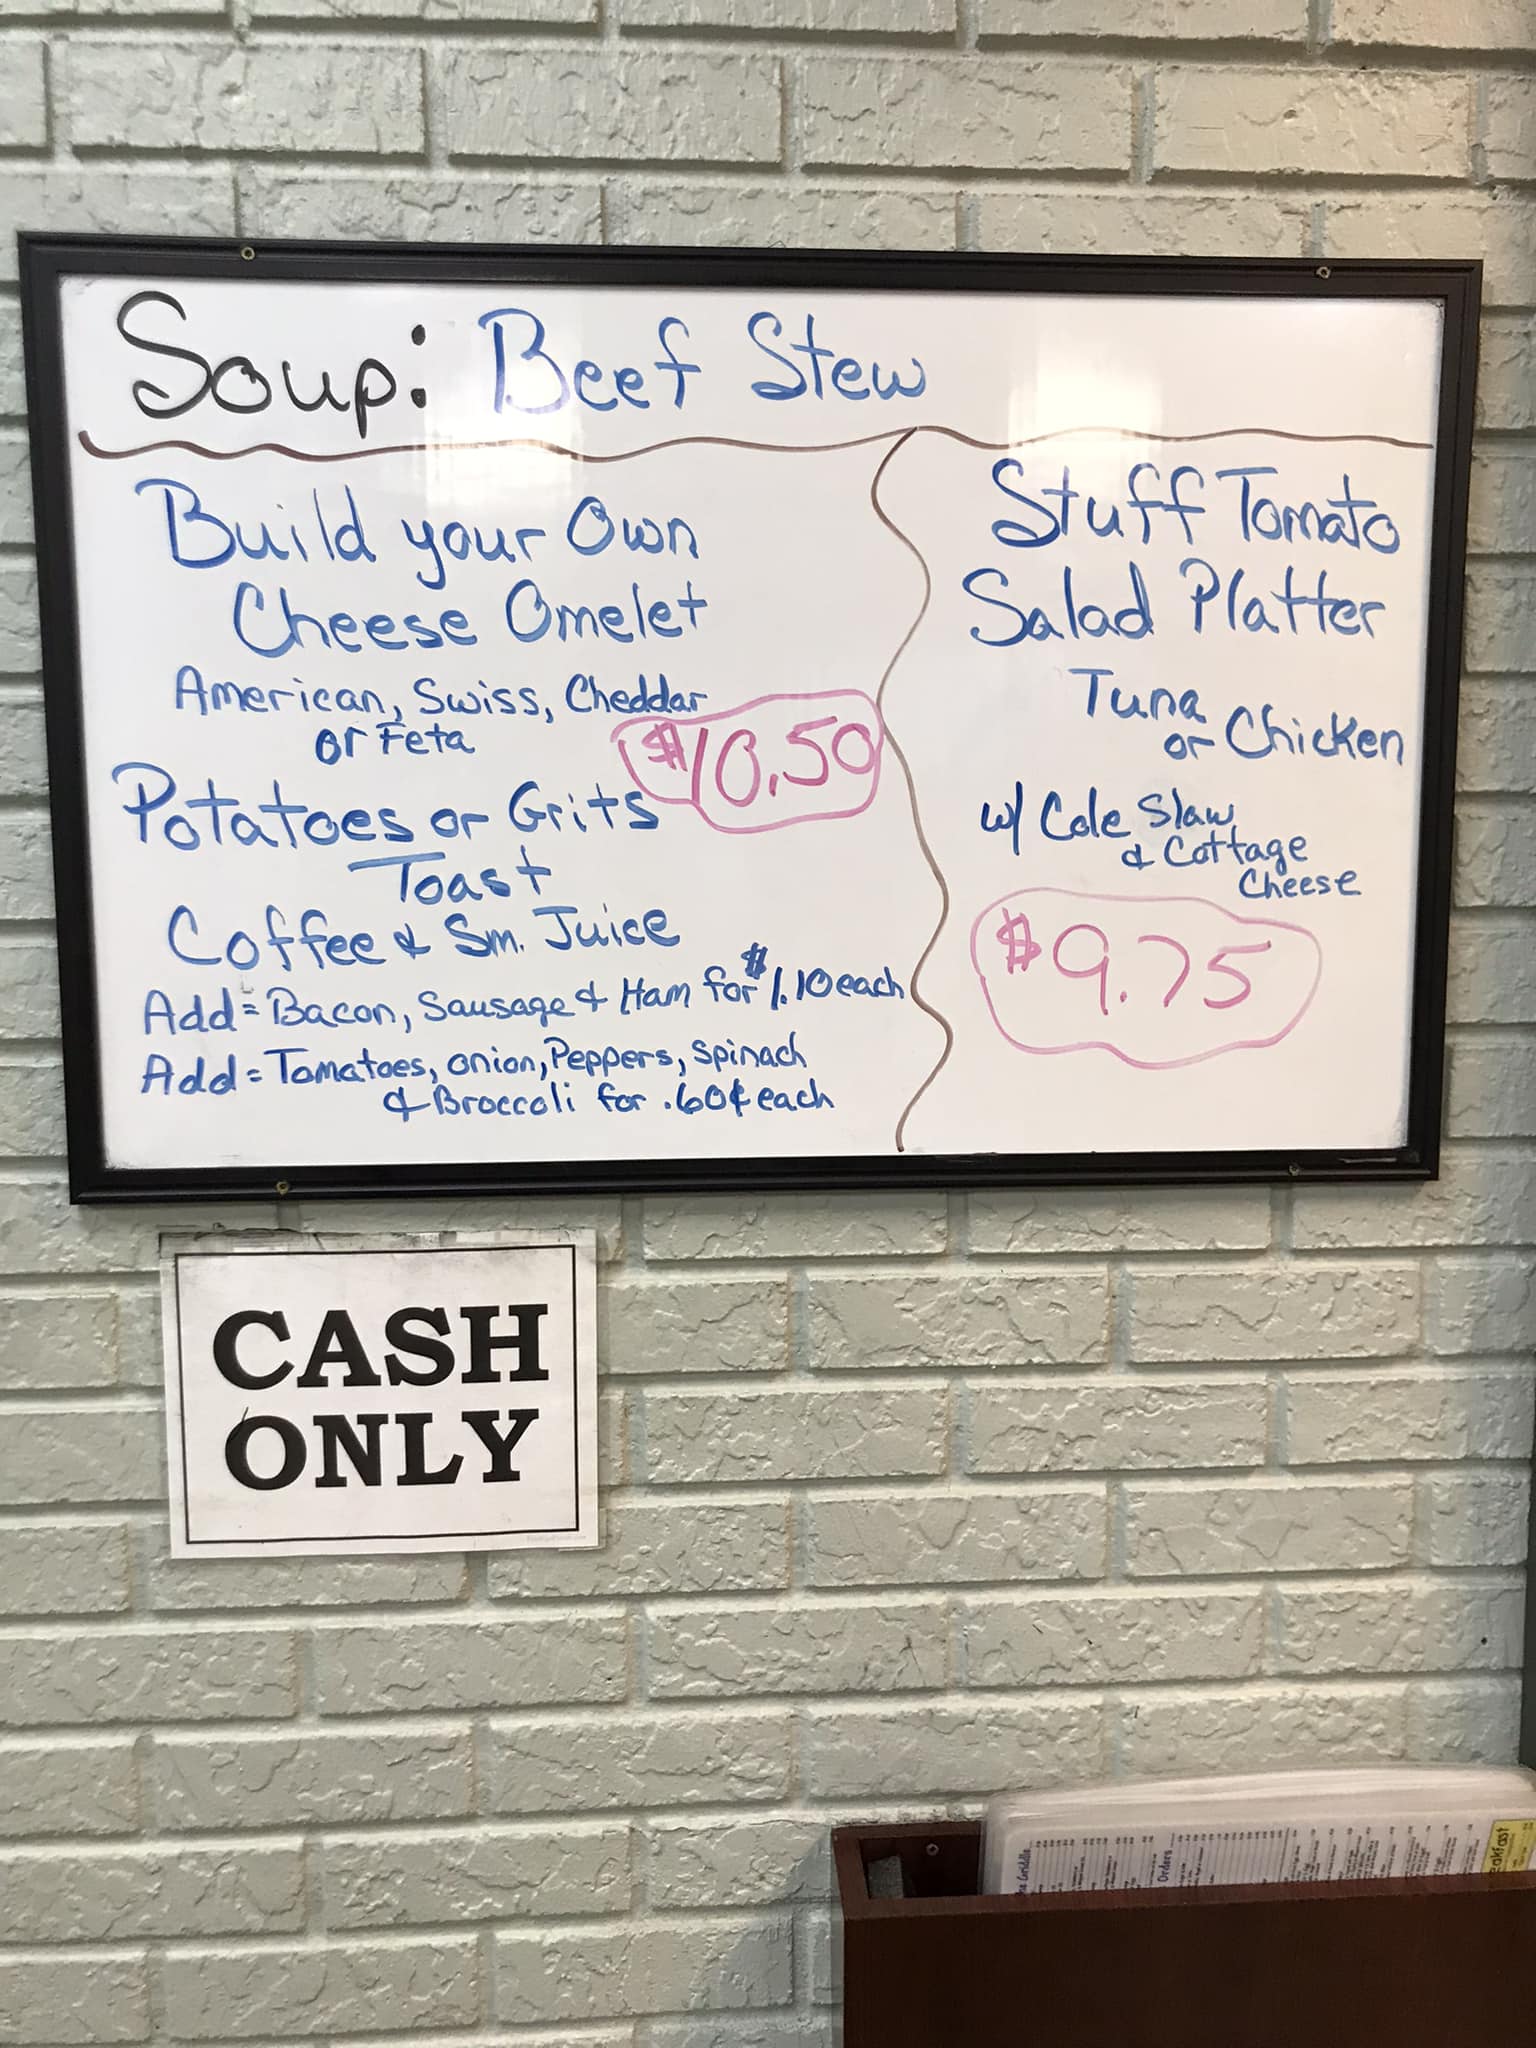 Soup: Beef Stew
Build your Own
Cheese Omelet
American, Swiss, Cheddar
or Feta
$10.50
Potatoes or Grits
Toast
Coffee & Sm. Juice
Add = Bacon, Sausage & Ham for $1.10 each
Add = Tomatoes, onion, Peppers, Spinach
& Broccoli for .60¢ each
Stuff Tomato
Salad Platter
Tuna
or Chicken
w/ Cole Slaw
& Cottage
Cheese
$9.75
CASH
ONLY
Griddle
Orders